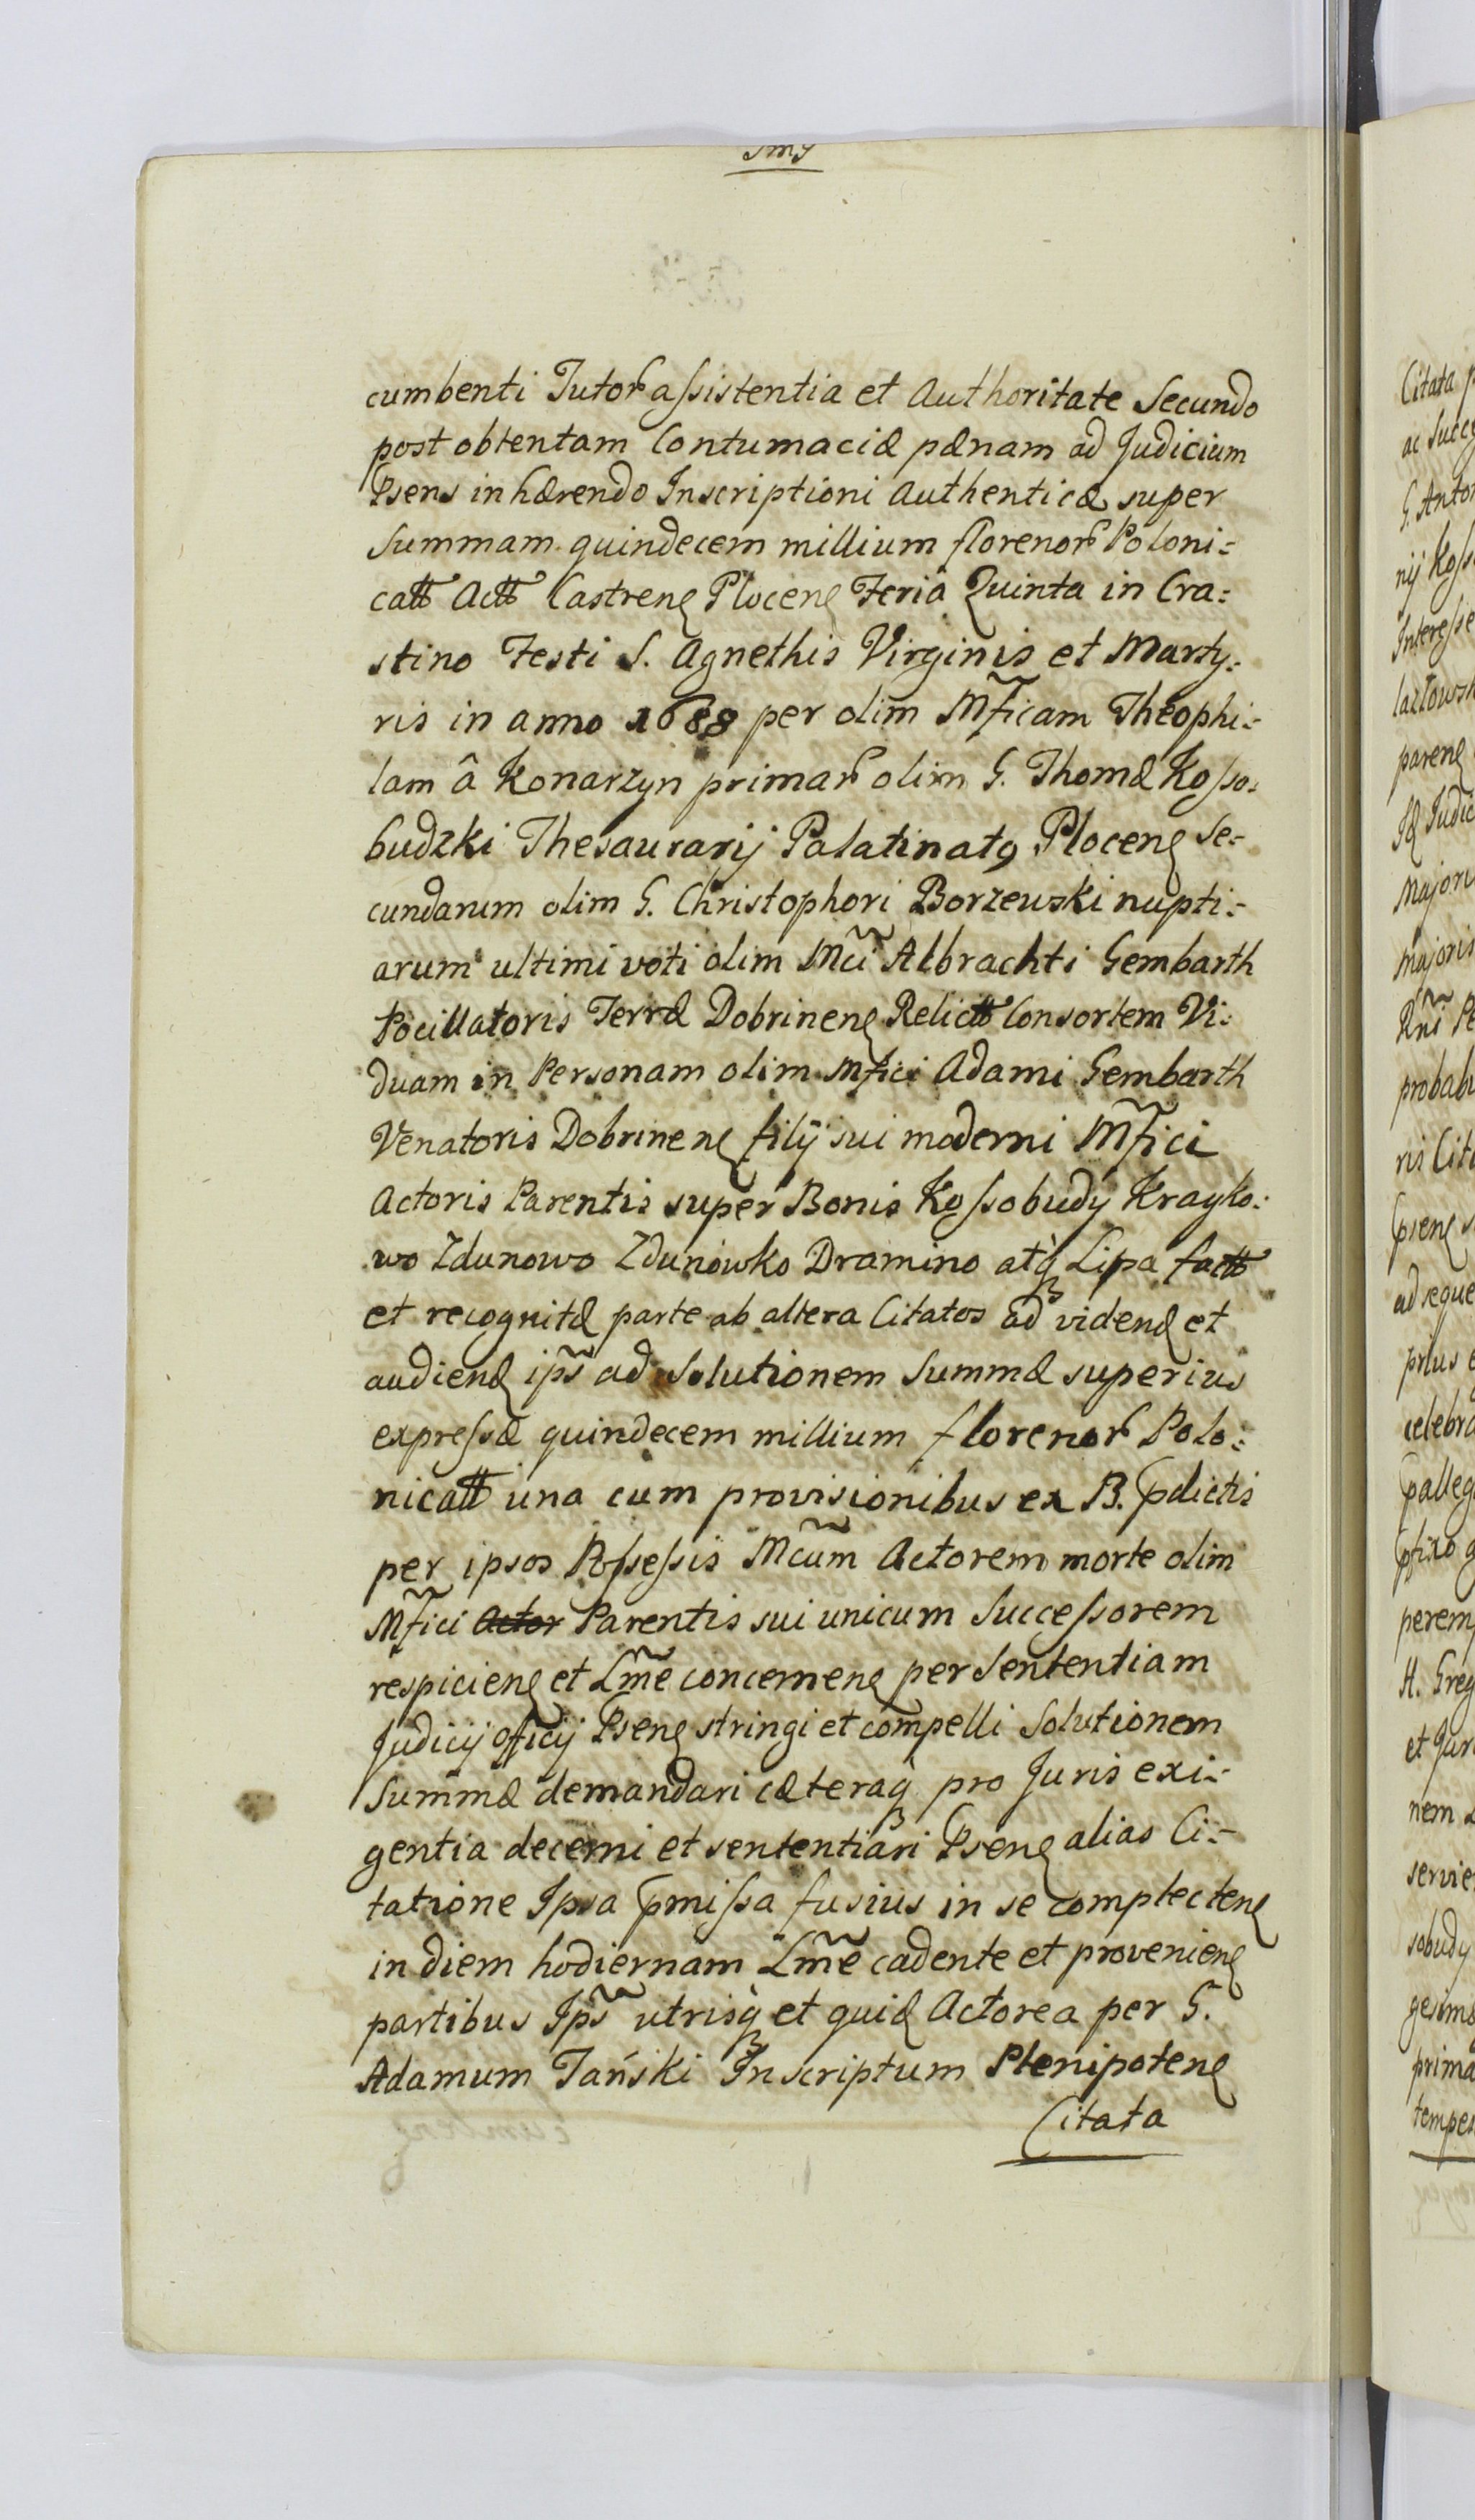 cumbenti Tutor assistentia et Authoritate Secundo
post obtentam Contumaciæ pænam ad Judicium
Psens inhærendo Inscriptioni Authenticæ super
Summam quindecem millium florenor Poloni:
catt Actt Castren Plocen Feriâ Quinta in Cra:
stino Festi S. Agnethis Virginis et Marty:
ris in anno 1688 per olim Mficam Theophi:
lam â Konarzyn primar olim G. Thomæ Kosso:
budzki Thesaurarij Palatinatꝯ Plocen Se:
cundarum olim G. Christophori Borzewski nupti:
arum ultimi voti olim Mci Albrachti Gembarth
Pocillatoris Terræ Dobrinen Relictt Consortem Vi:
duam in Personam olim Mfici Adami Gembarth
Venatoris Dobrinen filij sui moderni Mfici
Actoris Parentis super Bonis Kossobudy Krayko:
wo Zdunowo Zdunowko Dramino atq Lipa factt
et recognitæ parte ab altera Citatos ad viden et
audien ips ad Solutionem Summæ superius
expressæ quindecem millium florenor Polo:
nicatt una cum provisionibus ex B. pdictis
per ipsos Possessis Mcum Actorem morte olim
Mfici Actor Parentis sui unicum Successorem
respicien et Lme concernen per Sententiam
Judicij Officij Psen stringi et compelli Solutionem
Summæ demandari cæteraq pro Juris exi:
gentia decerni et sententiari Psen alias Ci:
tatione Ipsa pmissa fusius in se complecten
in diem hodiernam Lme cadente et provenien
partibus Ips utrisq et quid Actorea per G.
Adamum Tański Inscriptum Plenipoten
Citata